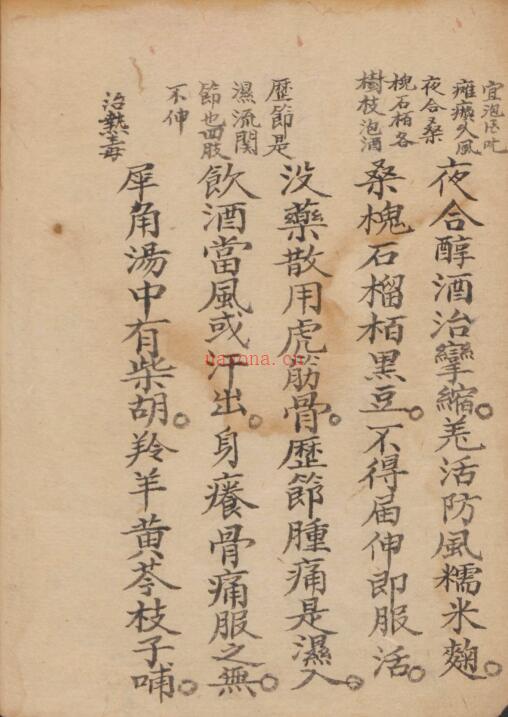 夜合醇酒治攣縮。羌活防風糯米麯。
桑槐石榴栢黑豆。不得届伸即服活。
没藥散用虎筋骨。歷節腫痛是濕入。
飲酒當風或汗出。身癢骨痛服之無。
犀角湯中有柴胡。羚羊黄芩枝子哺。
癱瘓久風
夜合桑
槐石栢各
樹枝泡酒
歷節是
濕流関
節也四肢
不伸
治熱毒
uarona.cn